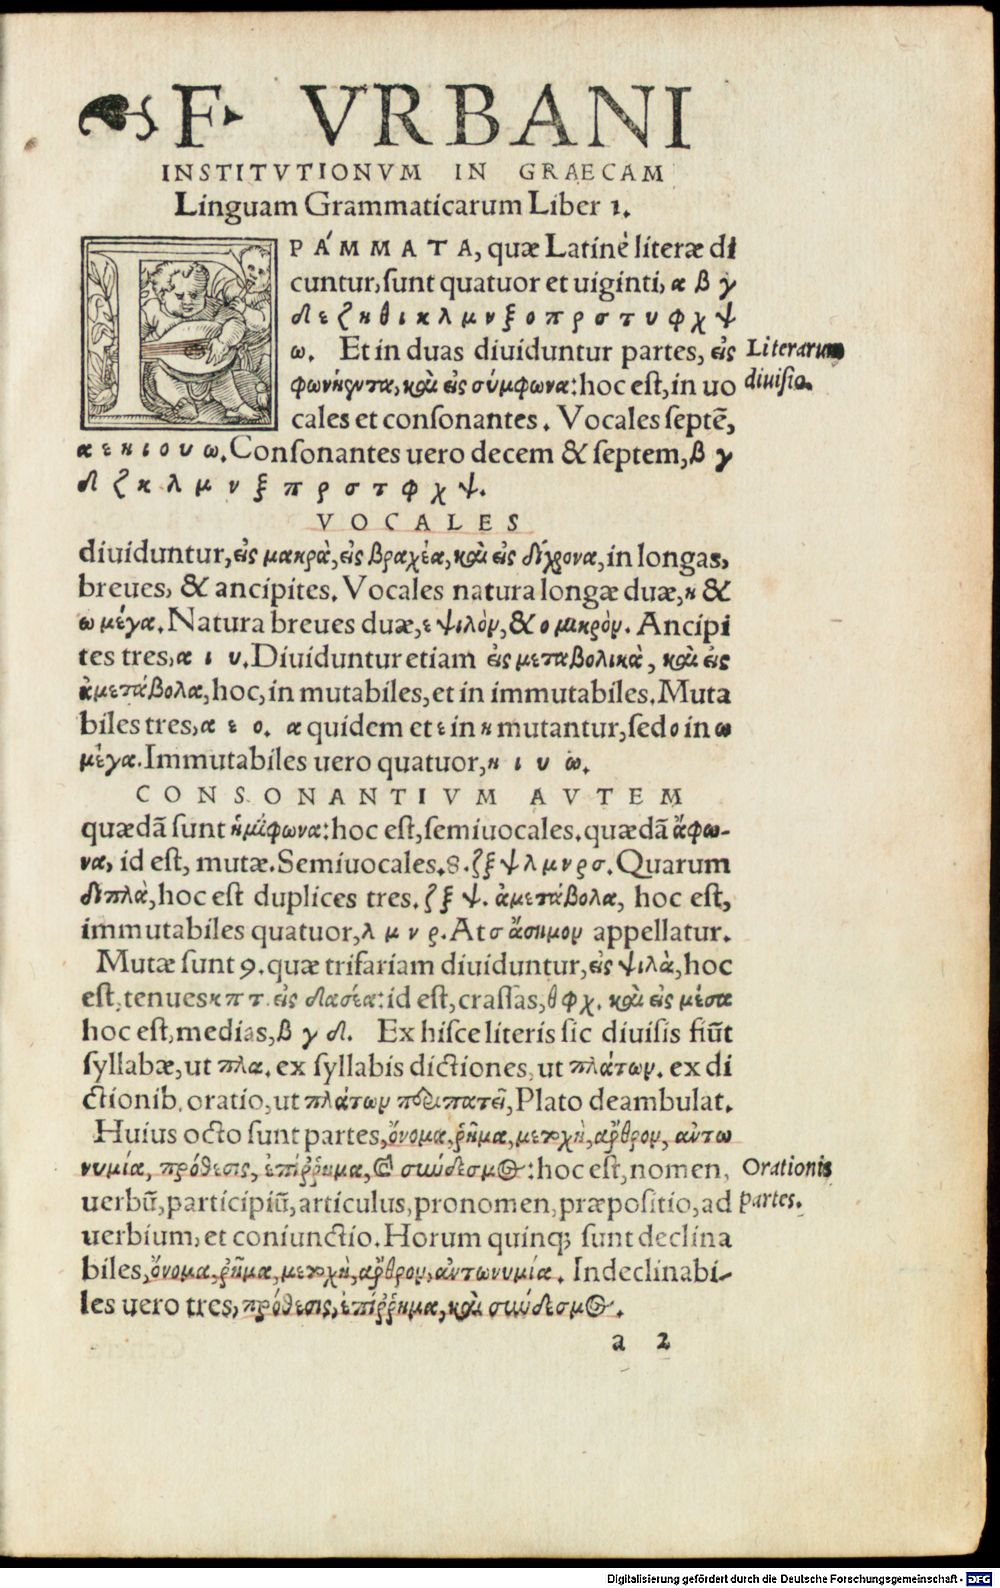 F. VRBANI
INSTITVTIONVM IN GRAECAM
Linguam Grammaticarum Liber 1.
ΓΡΆΜΜΑΤΑ, quæ Latinè literæ di
cuntur, sunt quatuor et uiginti, α β γ
δ ε ζ η θ ι κ λ μ ν ξ ο π ρ σ τ υ φ χ ψ
ω. Et in duas diuiduntur partes, εἰς
φωνήεντα, καὶ εἰς σύμφωνα: hoc est, in uo
cales et consonantes. Vocales septē,
α ε η ι ο υ ω. Consonantes uero decem & septem, β γ
δ ζ κ λ μ ν ξ π ρ σ τ φ χ ψ.
Literarum
diuisio.
VOCALES
diuiduntur, εἰς μακρὰ, εἰς βραχέα, καὶ εἰς δίχρονα, in longas,
breues, & ancipites. Vocales natura longæ duæ, η &
ω μέγα. Natura breues duæ, ε ψιλὸν, & ο μικρὸν. Ancipi
tes tres, α ι υ. Diuiduntur etiam εἰς μεταβολικὰ, καὶ εἰς
ἀμετάβολα, hoc, in mutabiles, et in immutabiles. Muta
biles tres, α ε ο. α quidem et ε in η mutantur, sed ο in ω
μέγα. Immutabiles uero quatuor, η ι υ ω.
CONSONANTIVM AVTEM
quædā sunt ἡμίφωνα: hoc est, semiuocales. quædā ἄφω-
να, id est, mutæ. Semiuocales. 8. ζ ξ ψ λ μ ν ρ σ. Quarum
διπλὰ, hoc est duplices tres. ζ ξ ψ. ἀμετάβολα, hoc est,
immutabiles quatuor, λ μ ν ρ. At σ ἄσημον appellatur.
Mutæ sunt 9. quæ trifariam diuiduntur, εἰς ψιλὰ, hoc
est, tenues κ π τ. εἰς δασέα: id est, crassas, θ φ χ. καὶ εἰς μέσα
hoc est, medias, β γ δ. Ex hisce literis sic diuisis fiūt
syllabæ, ut πλα. ex syllabis dictiones, ut πλάτων. ex di
ctionib. oratio, ut πλάτων περιπατεῖ, Plato deambulat.
Huius octo sunt partes, ὄνομα, ῥῆμα, μετοχὴ, ἄρθρον, ἀντω
νυμία, πρόθεσις, ἐπίῤῥημα, & σύνδεσμος: hoc est, nomen,
uerbū, participiū, articulus, pronomen, præpositio, ad
uerbium, et coniunctio. Horum quinq; sunt declina
biles, ὄνομα, ῥῆμα, μετοχὴ, ἄρθρον, ἀντωνυμία. Indeclinabi-
les uero tres, πρόθεσις, ἐπίῤῥημα, καὶ σύνδεσμος.
Orationis
partes.
a 2
Digitalisierung gefördert durch die Deutsche Forschungsgemeinschaft - DFG